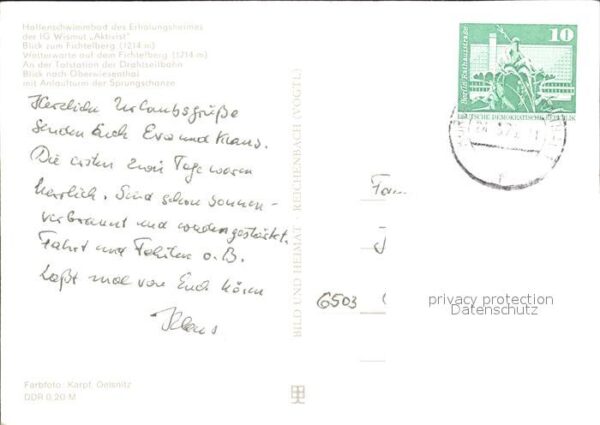 Hallenschwimmbad des Erholungsheimes
der IG Wismut „Aktivist"
Blick zum Fichtelberg (1214 m)
Wetterwarte auf dem Fichtelberg (1214 m)
An der Talstation der Drahtseilbahn
Blick nach Oberwiesenthal
mit Anlaufturm der Sprungschanze
Herzliche Urlaubsgrüße
senden Euch Eva und Klaus.
Die ersten zwei Tage waren
herrlich. Sind schon sonnen-
verbrannt und
Fahrt und o. B.
Laßt mal von Euch hören
Klaus
Farbfoto: Karpf, Oelsnitz
DDR 0,20 M
BILD UND HEIMAT REICHENBACH (VOGTL)
10
Berlin, Rathausstraße
DEUTSCHE DEMOKRATISCHE REPUBLIK
Fam
6503
privacy protection
Datenschutz